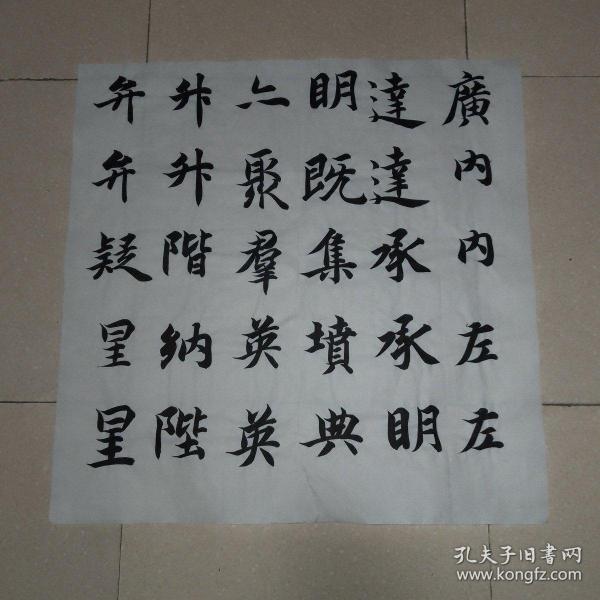 廣内内左左
達達承承明
明既集墳典
亠聚羣英英
升升階納陛
弁弁疑星星
孔夫子旧書网
www.kongfz.com